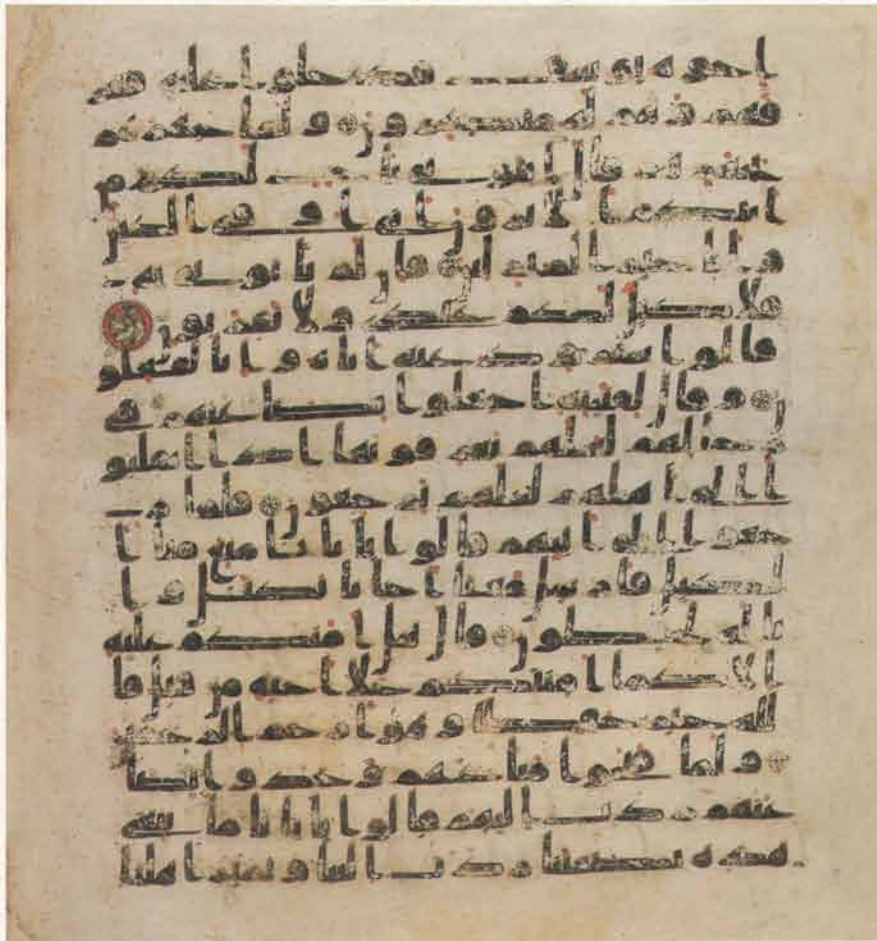 اخوه يوسف فدخلوا عليه فعر
فهم وهم له منكرون ولما جهزهم
بجهازهم قال ائتوني باخ لكم من
ابيكم الا ترون اني اوفي الكيل
وانا خير المنزلين فان لم تاتوني به
فلا كيل لكم عندي ولا تقربون
قالوا سنرود عنه اباه وانا لفعلو
ن وقال لفتينه اجعلوا بضعتهم في
رحالهم لعلهم يعرفونها اذا انقلبو
ا الى اهلهم لعلهم يرجعون فلما ر
جعوا الى ابيهم قالوا يابانا منع منا ا
لكيل فارسل معنا اخانا نكتل وا
نا له لحفظون قال هل امنكم عليه
الا كما امنتكم على اخيه من قبل فا
لله خير حفظا وهو ارحم الرحمين
ولما فتحوا متعهم وجدوا بضا
عتهم ردت اليهم قالوا يابانا ما نبغي
هذه بضعتنا ردت الينا ونمير اهلنا